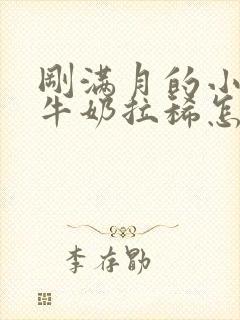 刚满月的小
牛奶拉稀怎
李存勖